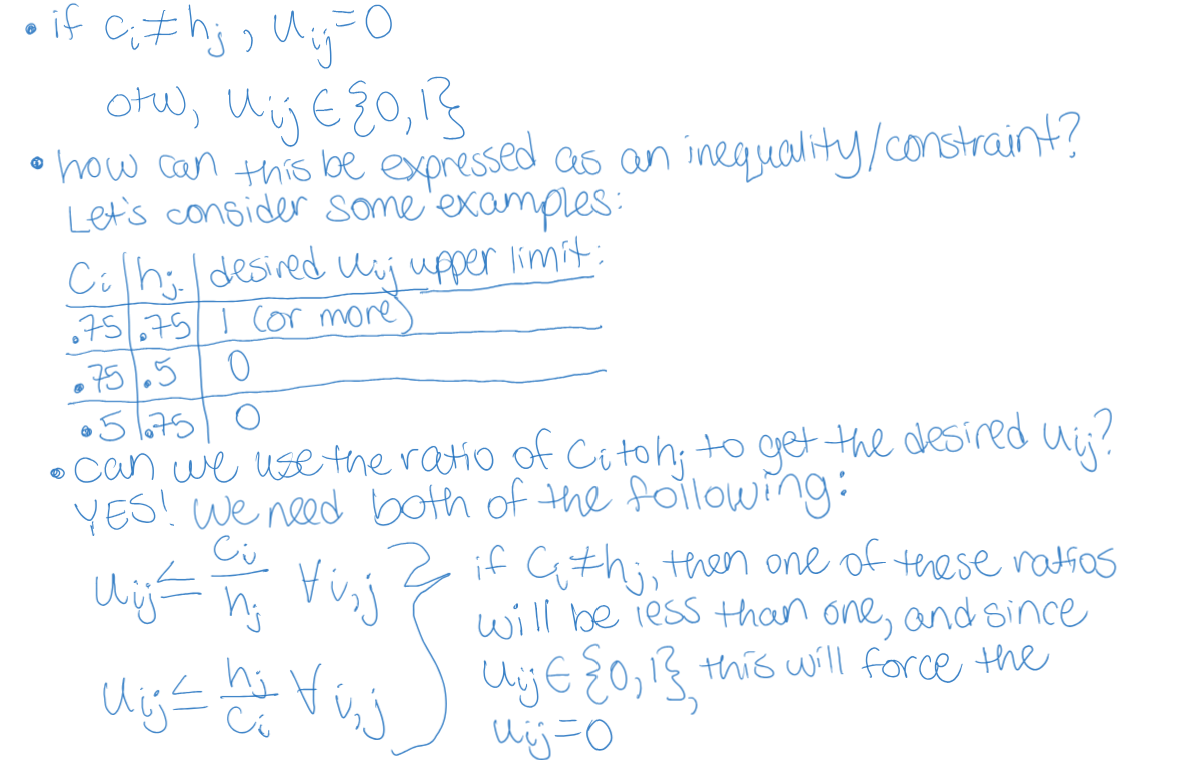 • if cᵢ ≠ hⱼ, uᵢⱼ = 0
otw, uᵢⱼ ∈ {0,1}
• how can this be expressed as an inequality/constraint?
Let's consider some examples:
Cᵢ | hⱼ | desired uᵢⱼ upper limit:
.75 | .75 | 1 (or more)
.75 | .5 | 0
.5 | .75 | 0
• can we use the ratio of Cᵢ to hⱼ to get the desired uᵢⱼ?
YES! We need both of the following:
uᵢⱼ ≤ Cᵢ/hⱼ ∀ i,j
uᵢⱼ ≤ hⱼ/Cᵢ ∀ i,j
if Cᵢ ≠ hⱼ, then one of these ratios
will be less than one, and since
uᵢⱼ ∈ {0,1}, this will force the
uᵢⱼ = 0